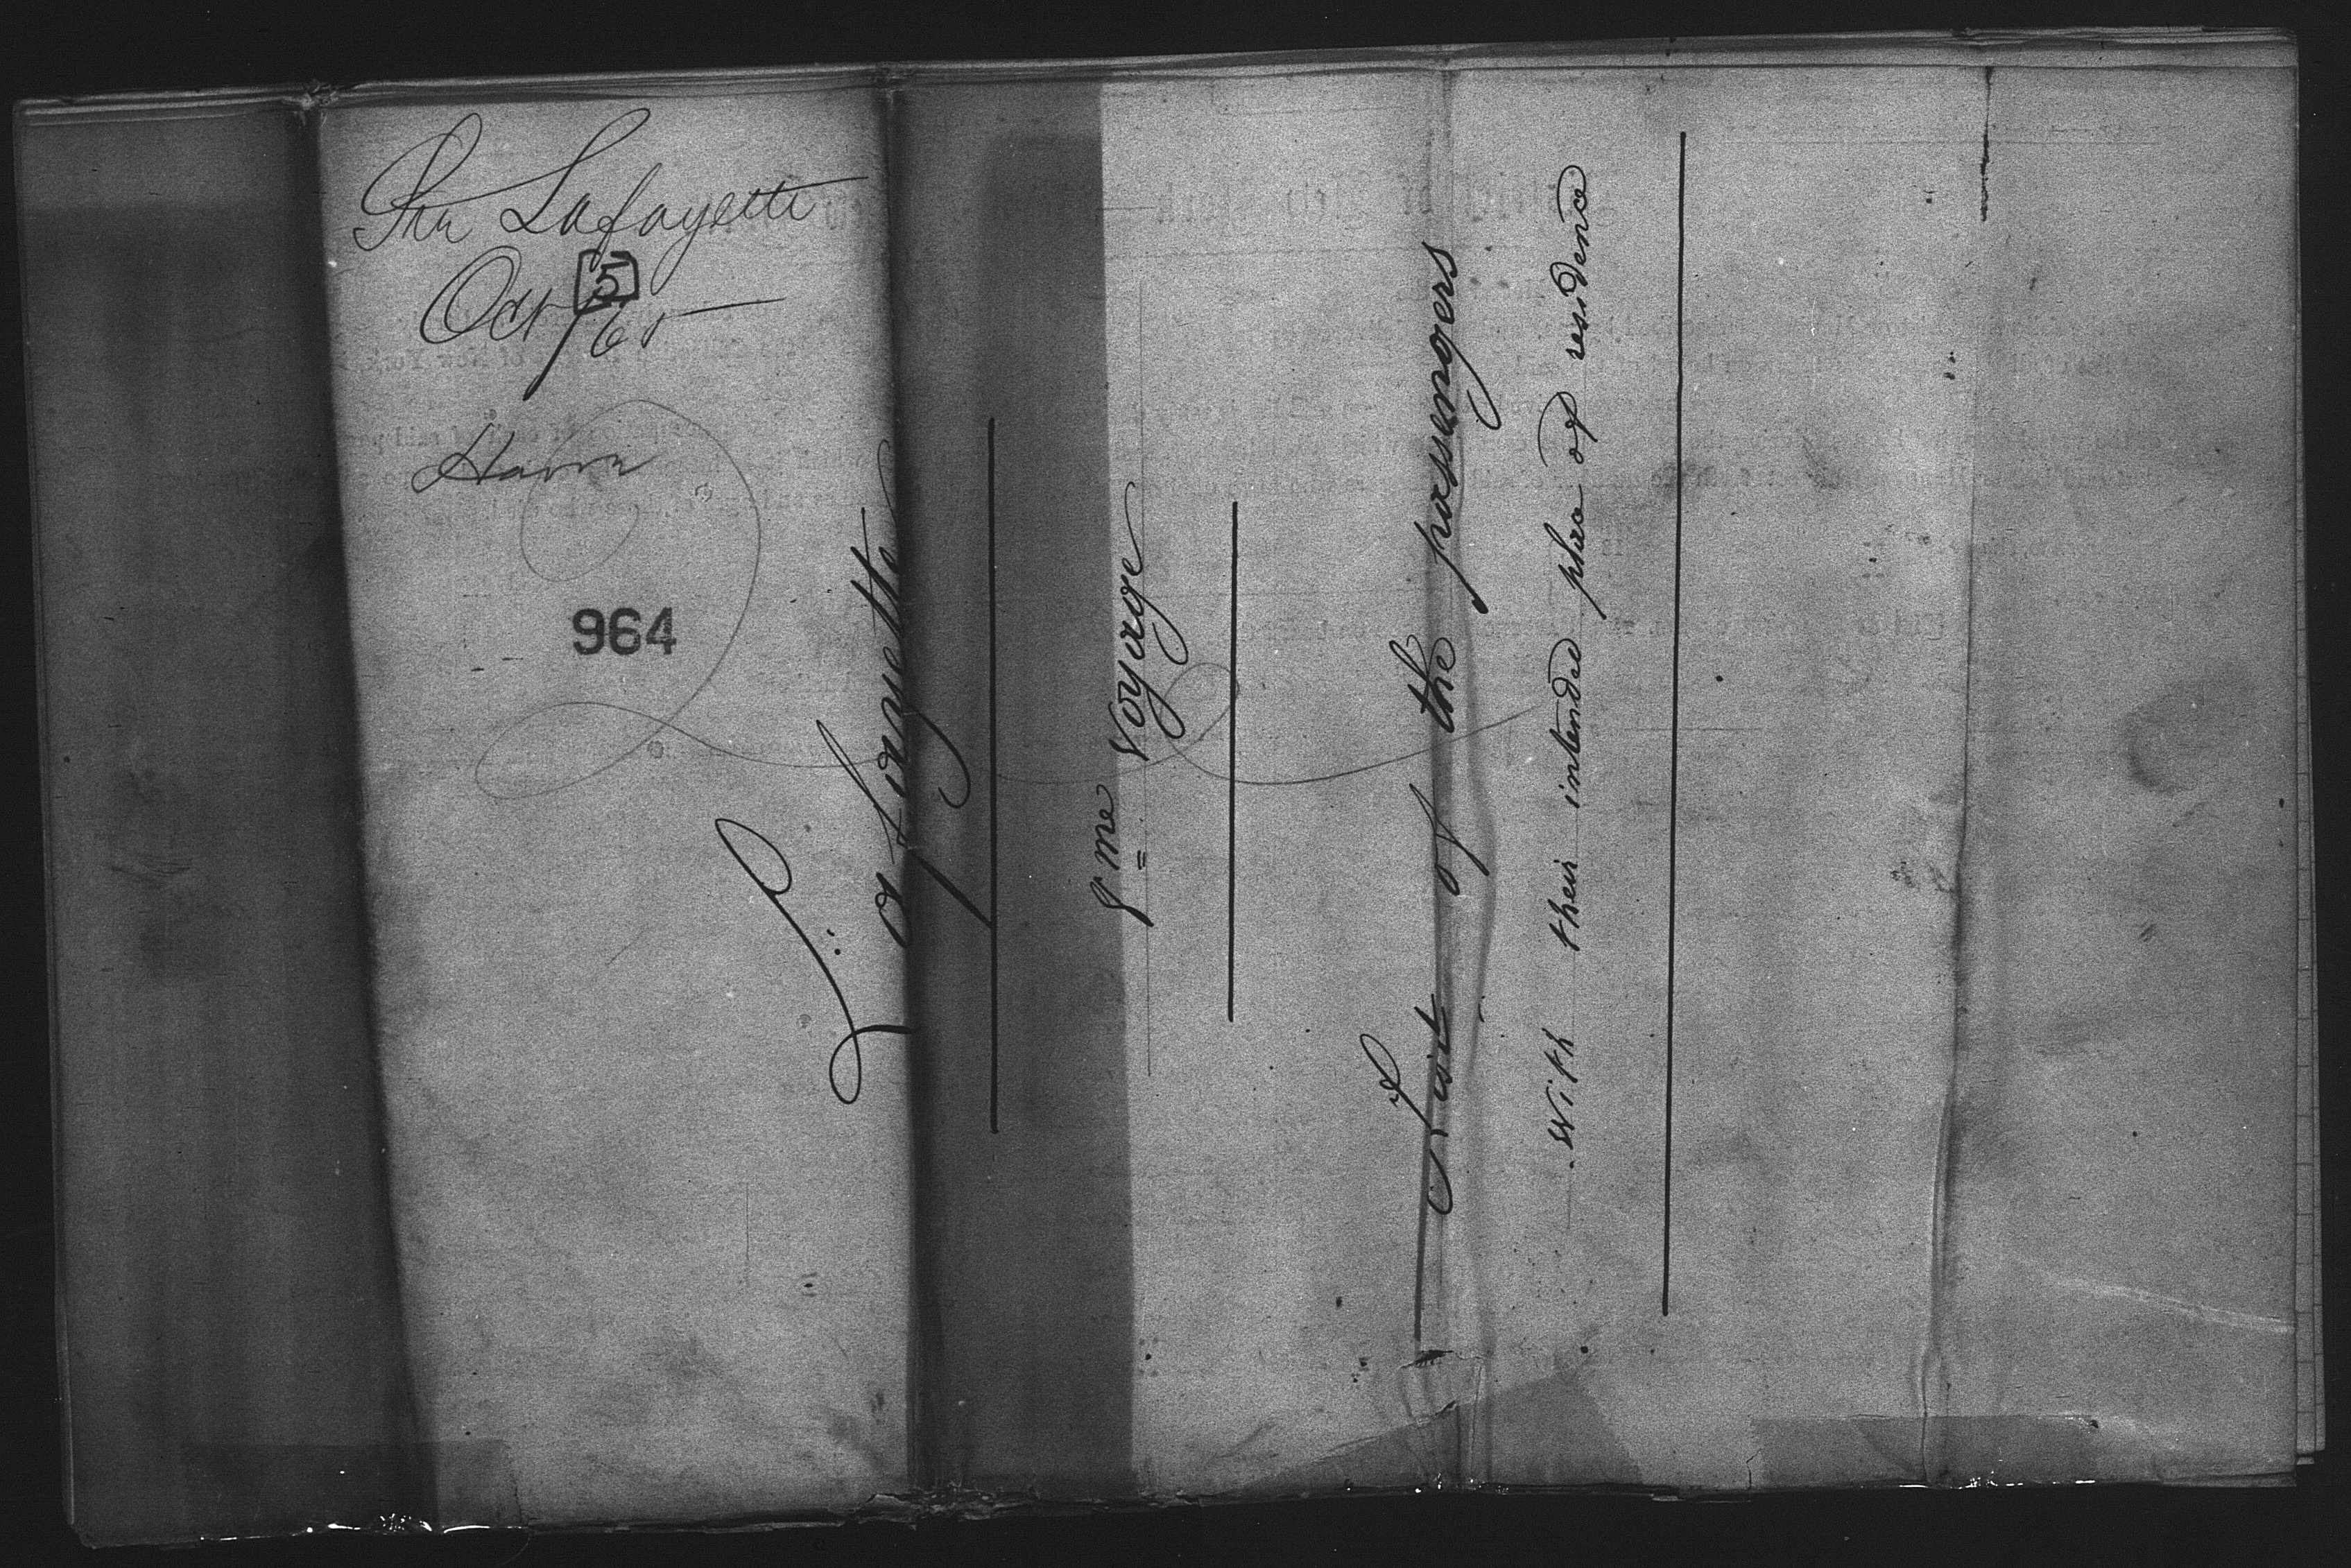 Str Lafayette
Oct 5/65
Havre
964
Lafayette
8me voyage
List of the passengers
With their intended place of residence
of New York